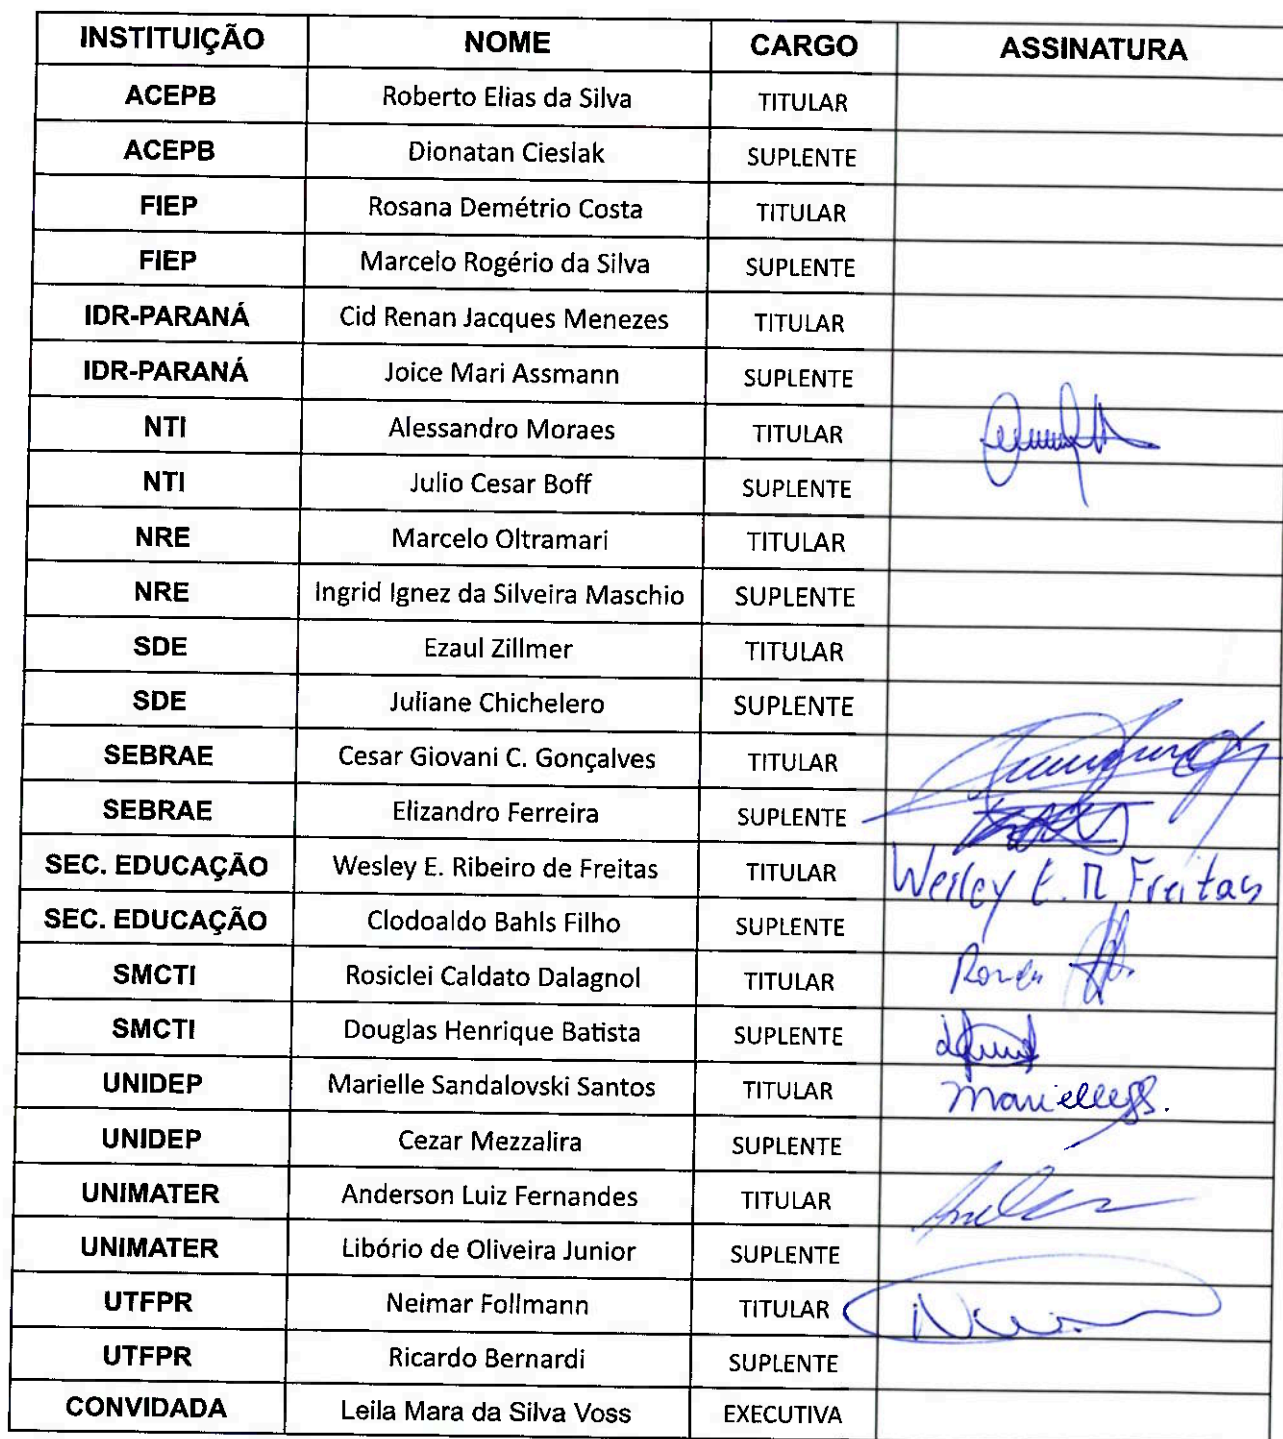 INSTITUIÇÃO NOME CARGO ASSINATURA
ACEPB Roberto Elias da Silva TITULAR
ACEPB Dionatan Cieslak SUPLENTE
FIEP Rosana Demétrio Costa TITULAR
FIEP Marcelo Rogério da Silva SUPLENTE
IDR-PARANÁ Cid Renan Jacques Menezes TITULAR
IDR-PARANÁ Joice Mari Assmann SUPLENTE
NTI Alessandro Moraes TITULAR
NTI Julio Cesar Boff SUPLENTE
NRE Marcelo Oltramari TITULAR
NRE Ingrid Ignez da Silveira Maschio SUPLENTE
SDE Ezaul Zillmer TITULAR
SDE Juliane Chichelero SUPLENTE
SEBRAE Cesar Giovani C. Gonçalves TITULAR
SEBRAE Elizandro Ferreira SUPLENTE
SEC. EDUCAÇÃO Wesley E. Ribeiro de Freitas TITULAR Wesley E. R Freitas
SEC. EDUCAÇÃO Clodoaldo Bahls Filho SUPLENTE
SMCTI Rosiclei Caldato Dalagnol TITULAR
SMCTI Douglas Henrique Batista SUPLENTE
UNIDEP Marielle Sandalovski Santos TITULAR Marielle SS.
UNIDEP Cezar Mezzalira SUPLENTE
UNIMATER Anderson Luiz Fernandes TITULAR
UNIMATER Libório de Oliveira Junior SUPLENTE
UTFPR Neimar Follmann TITULAR
UTFPR Ricardo Bernardi SUPLENTE
CONVIDADA Leila Mara da Silva Voss EXECUTIVA